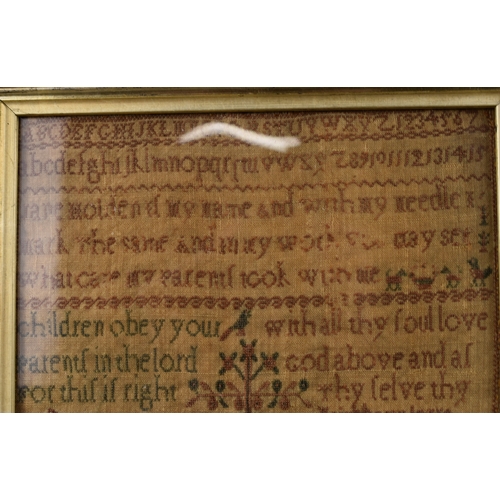 ABCDEFGHIJKLM UVWXYZ1234567
abcdefghijklmnopqrſuvwxyz 89101112131415
is my name and with my needle I
mark the same and in my work you may see
what care my parents took with me
children obey your with all thy ſoul love
parents in the lord god above and as
for this is right thy ſelve thy